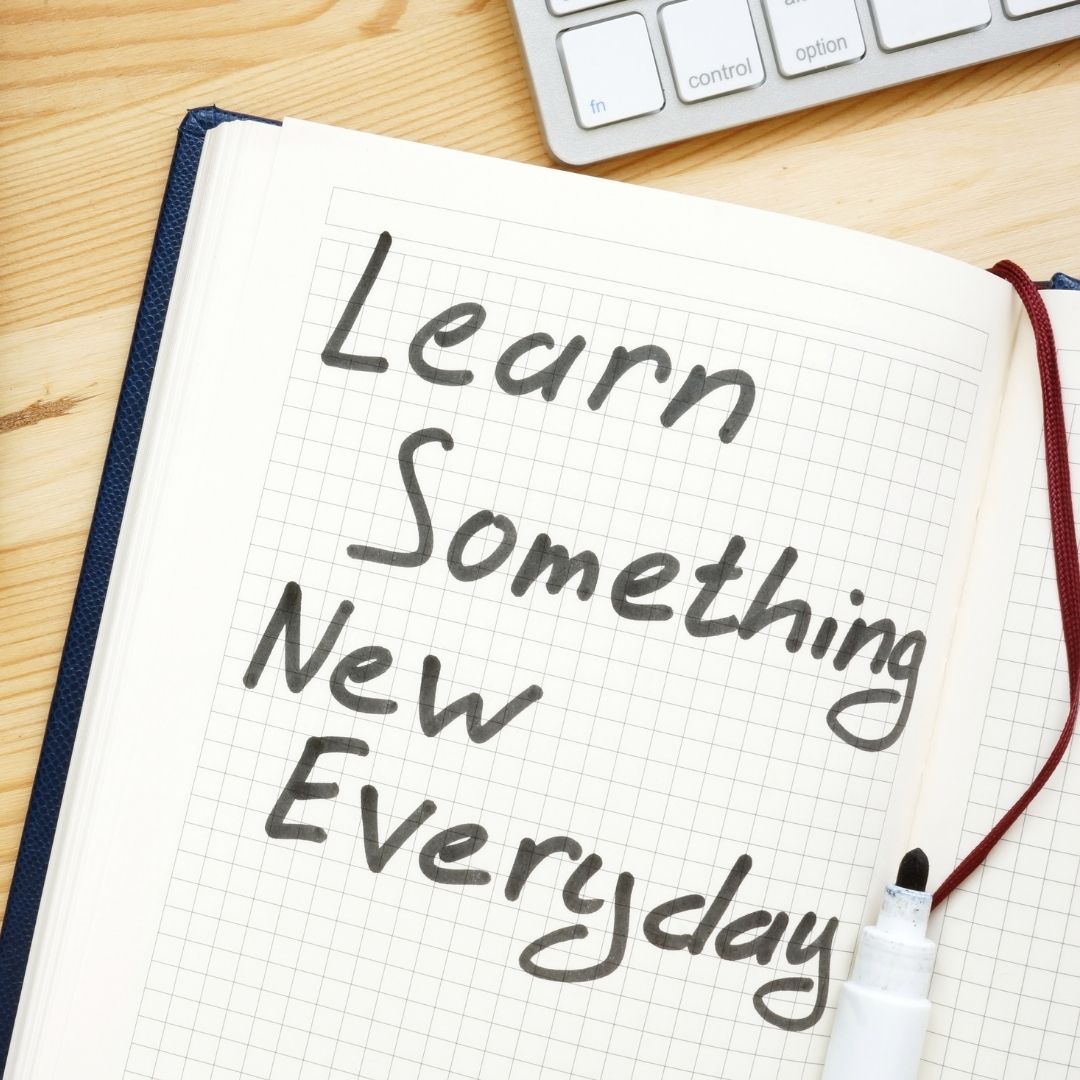 fn
control
option
Learn
Something
New
Everyday